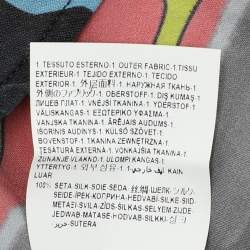 1 TESSUTO ESTERNO-1 OUTER FABRIC-1 TISSU
EXTERIEUR-1 TEJIDO EXTERNO-1 TECIDO
EXTERIOR-1 外层面料-1 НАРУЖНАЯ ТКАНЬ-1
外側のファブリック-1 OBERSTOFF-1 DIŞ KUMAŞ-1
ЛИЦЕВ ПЛАТ-1 VNĚJŠÍ TKANINA-1 YDERSTOF-1
VÄLISKANGAS-1 ΕΞΩΤΕΡΙΚΟ ΥΦΑΣΜΑ-1
VANJSKA TKANINA-1 ĀRĒJAIS AUDUMS-1
IŠORINIS AUDINYS-1 KÜLSŐ SZÖVET-1
BOVENSTOF-1 TKANINA ZEWNĘTRZNA-1
VNÚTORNÁ TKANINA-1
ZUNANJE VLAKNO-1 ULOMPI KANGAS-1
YTTERTYG-1 외부섬유-1 أليف خارجي-1 KAIN
LUAR
100% SETA-SILK-SOIE-SEDA-丝绸-ШЕЛК-シルク-
SEIDE-İPEK-КОПРИНА-HEDVÁBÍ-SILKE-SIID-
ΜΕΤΑΞΙ-SVILA-ZĪDS-ŠILKAS-SELYEM-ZIJDE
JEDWAB-MATASE-HODVÁB-SILKKI-실크-
حرير-SUTERA